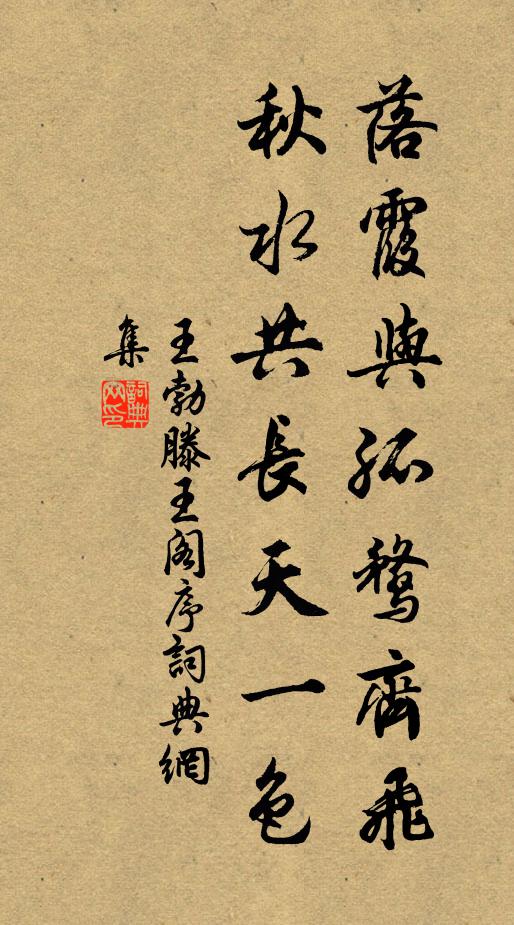 落霞與孤鶩齊飛
秋水共長天一色
王勃滕王閣序詞典網
集
詞典網印